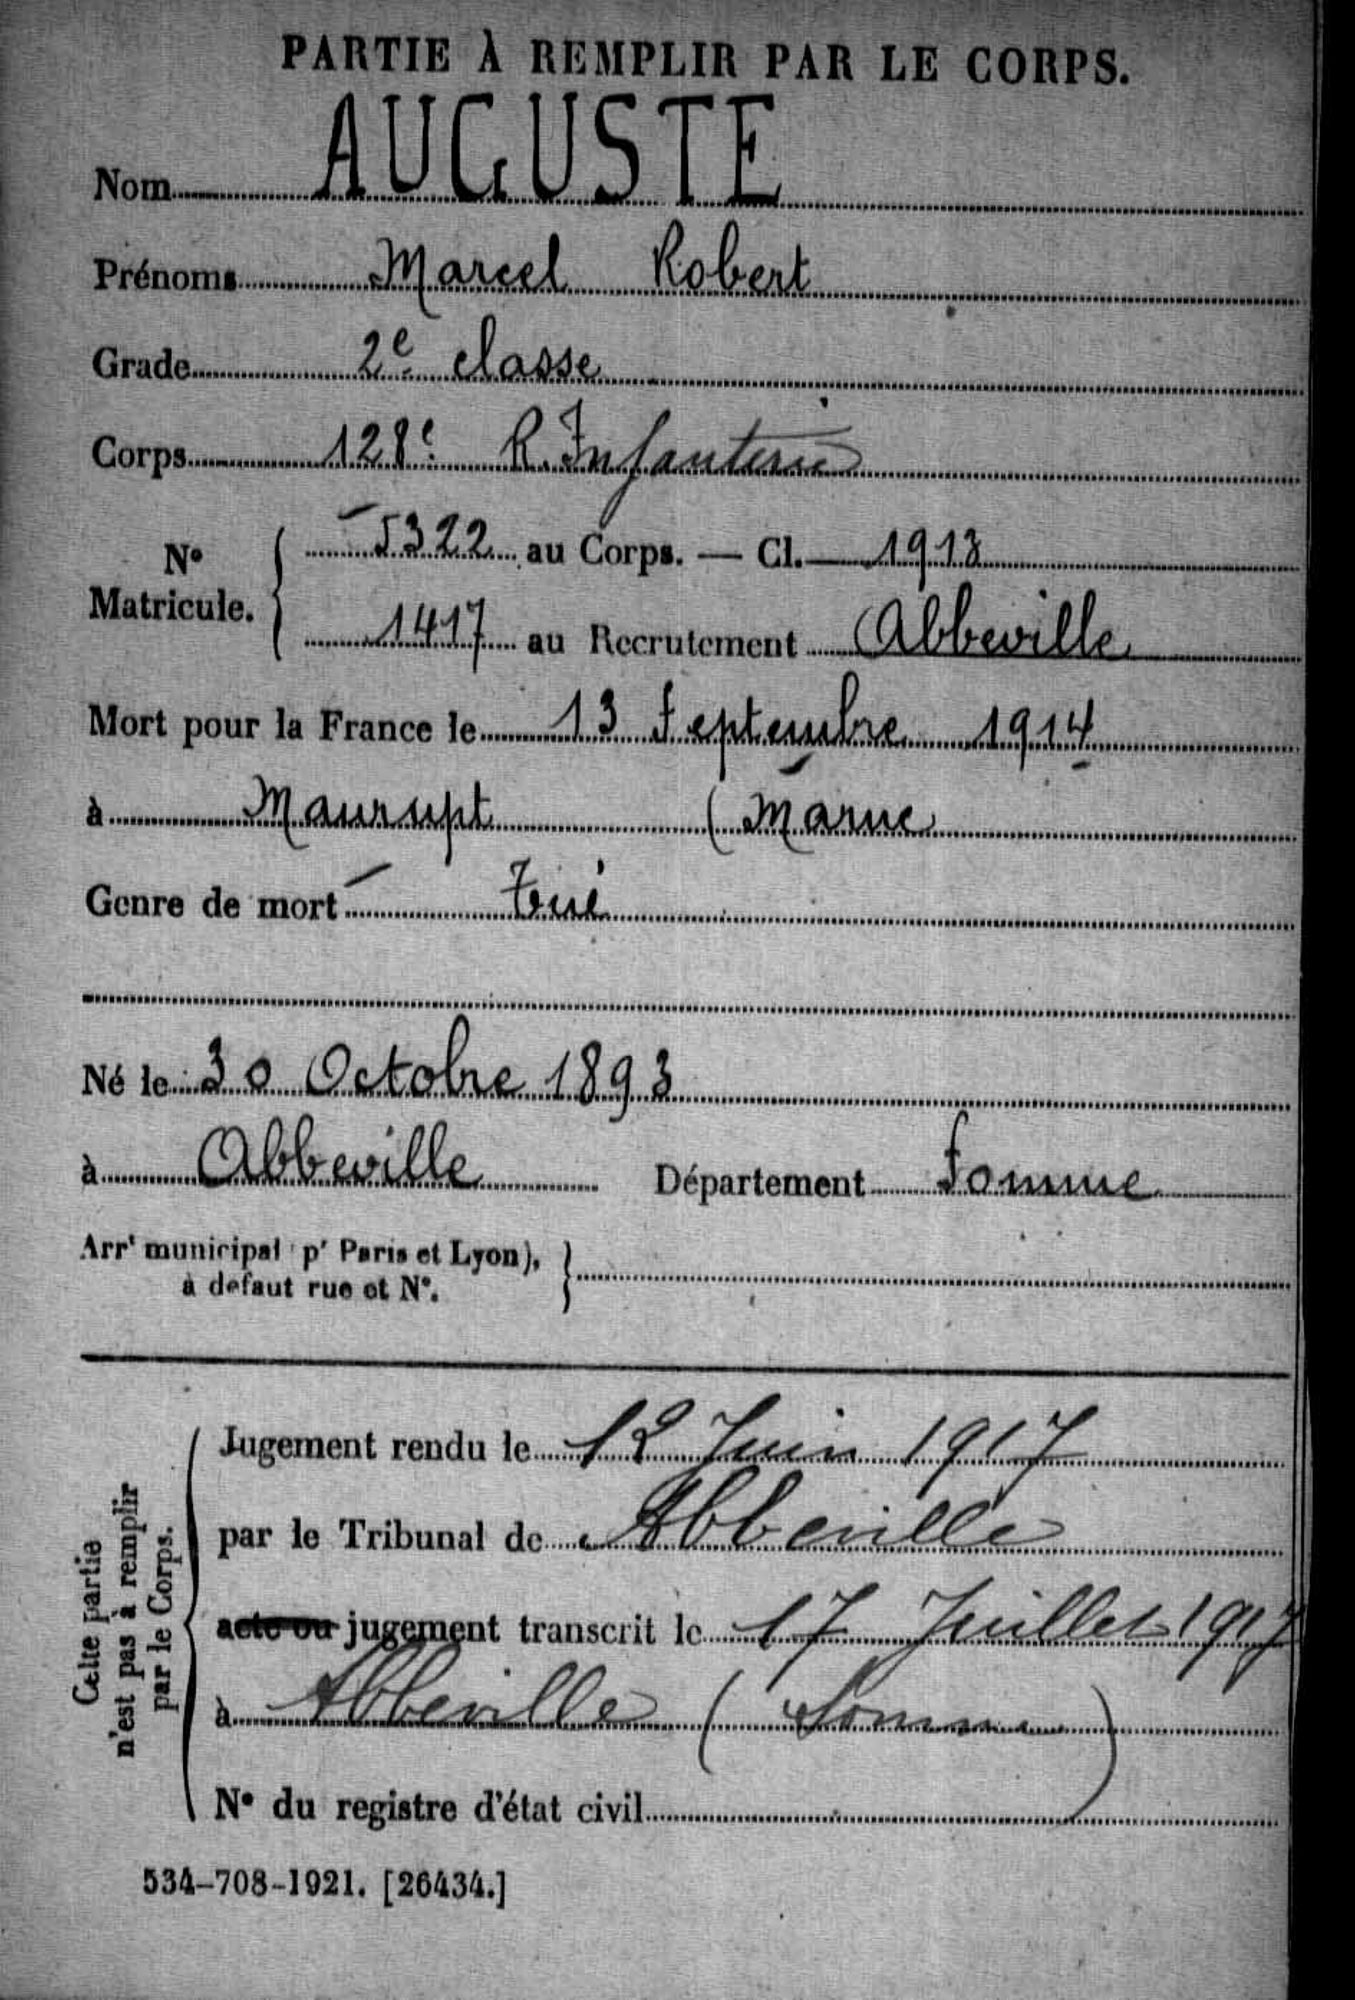 PARTIE À REMPLIR PAR LE CORPS.
Nom AUGUSTE
Prénoms Marcel Robert
Grade 2e classe
Corps 128e R. Infanterie
No Matricule. { 5322 au Corps. — Cl. — 1913
1417 au Recrutement Abbeville
Mort pour la France le 13 Septembre 1914
à Maurupt (Marne
Genre de mort Tué
Né le 30 Octobre 1893
à Abbeville Département Somme
Arrt municipal pr Paris et Lyon), }
à defaut rue et No.
Cette partie
n'est pas à remplir
par le Corps.
Jugement rendu le 12 Juin 1917
par le Tribunal de Abbeville
acte ou jugement transcrit le 17 Juillet 1917
à Abbeville (Somme)
No du registre d'état civil
534-708-1921. [26434.]